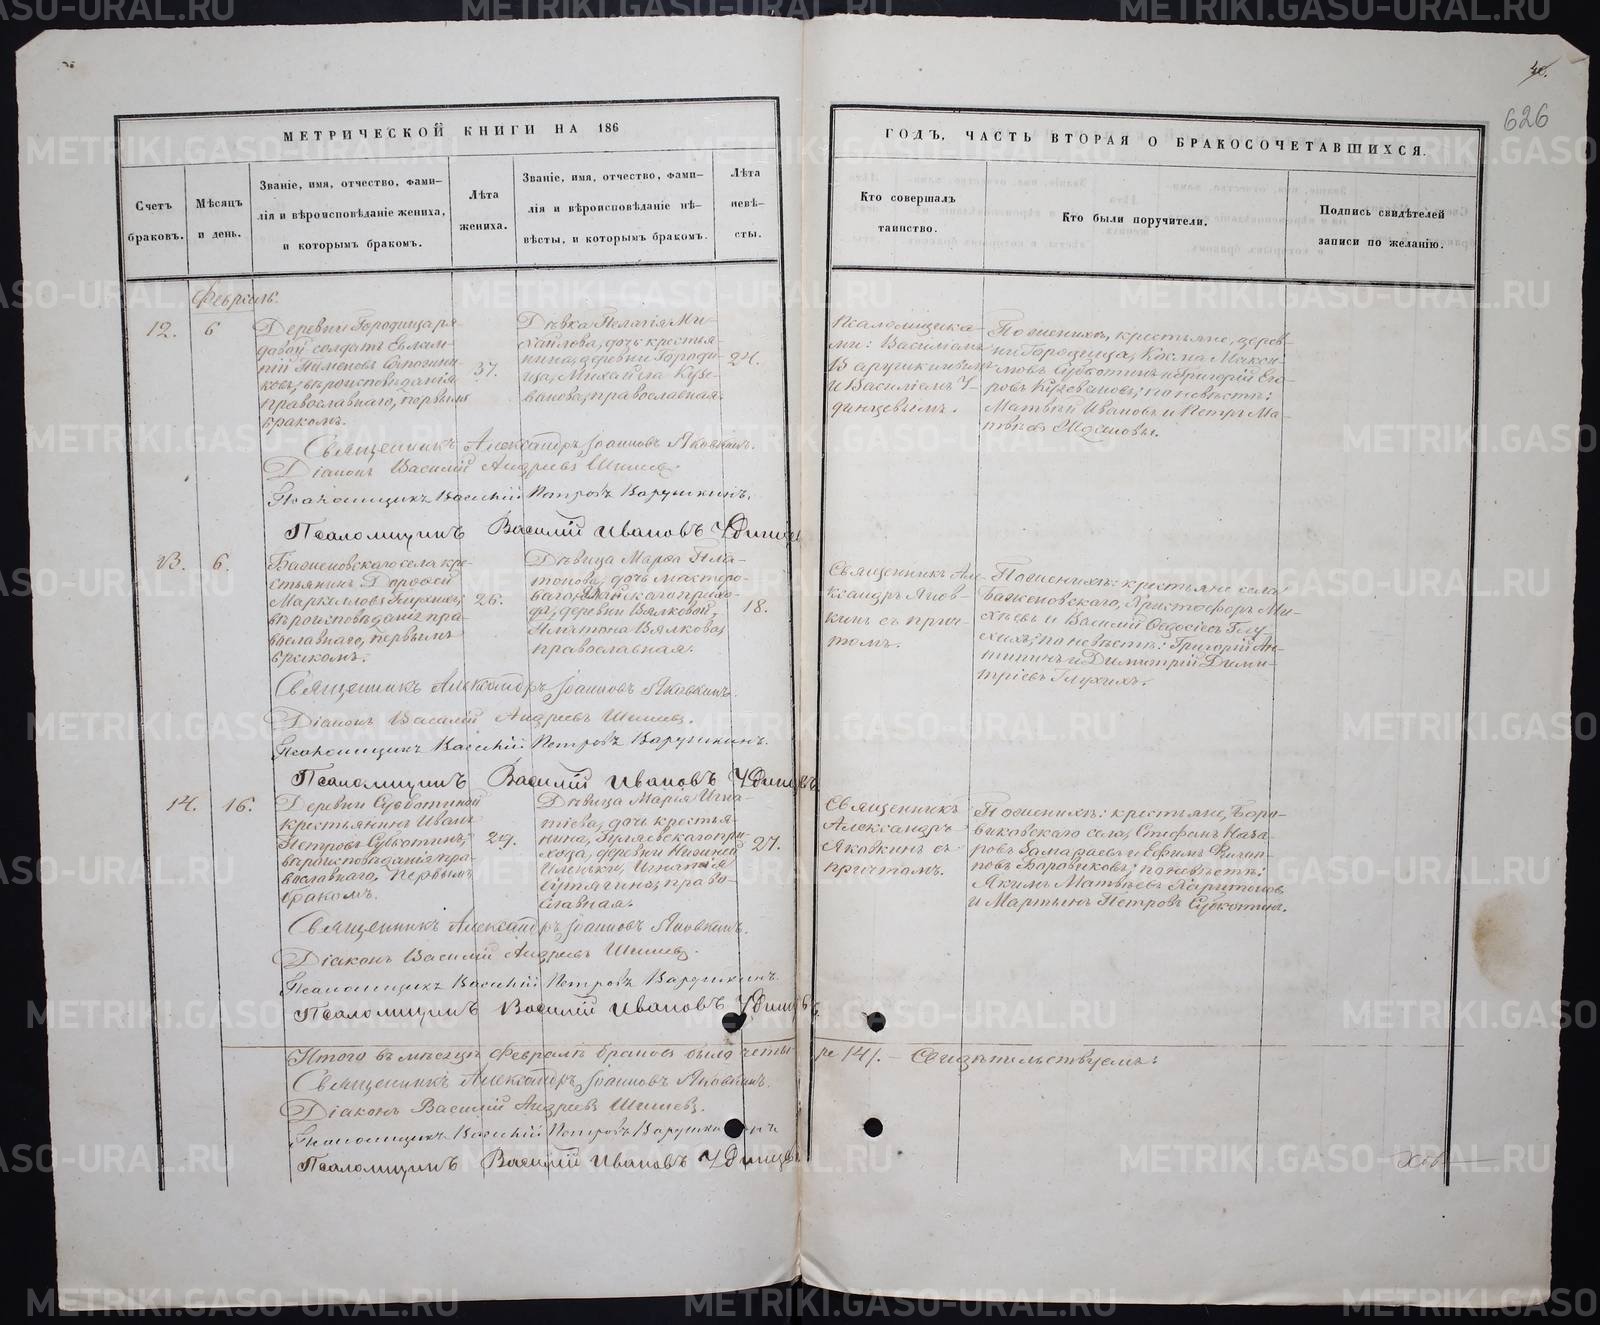 40.
626
МЕТРИЧЕСКОЙ КНИГИ НА 186
ГОДЪ, ЧАСТЬ ВТОРАЯ О БРАКОСОЧЕТАВШИХСЯ.
Счетъ
браковъ.
Мѣсяцъ
и день.
Званіе, имя, отчество, фами-
лія и вѣроисповѣданіе жениха,
и которымъ бракомъ.
Лѣта
жениха.
Званіе, имя, отчество, фами-
лія и вѣроисповѣданіе не-
вѣсты, и которымъ бракомъ.
Лѣта
невѣ-
сты.
Кто совершалъ
таинство.
Кто были поручители.
Подпись свидѣтелей
записи по желанію.
Февраль.
12.
6
Деревни Городища ря-
довой солдатъ Евлам-
пій Пименовъ
вѣроисповѣданія
православнаго, первымъ
бракомъ.
37.
Дѣвка Пелагія Ми-
хайлова, дочь крестья-
нина, деревни Городи-
ща, Михаила
православная.
24.
Псаломщика-
ми: Василіемъ
Варушкинымъ
и Василіемъ У-
динцевымъ.
По женихѣ, крестьяне, дерев-
ни Городища, Козма Макси-
мовъ Субботинъ и Григорій Его-
ровъ по невѣстѣ:
Матвѣй Ивановъ и Петръ Ма-
твѣевъ
Священникъ Александръ Іоанновъ Яковкинъ.
Діаконъ Василій Андреевъ Шишевъ.
Псаломщикъ Василій Петровъ Варушкинъ.
Псаломщикъ Василій Ивановъ Удинцевъ
13.
6.
Баженовскаго села кре-
стьянинъ Дорофей
Маркелловъ Глухихъ,
вѣроисповѣданія пра-
вославнаго, первымъ
бракомъ.
26.
Дѣвица Марѳа Пла-
тонова, дочь мастеро-
ваго, прихо-
да, деревни Вялковой,
Платона Вялкова,
православная.
18.
Священникъ Але-
ксандръ Яков-
кинъ съ прич-
томъ.
По женихѣ: крестьяне села
Баженовскаго, Христофоръ Ми-
хѣевъ и Василій Ѳедосіевъ Глу-
хихъ; по невѣстѣ: Григорій Ан-
типинъ и Димитрій Дими-
тріевъ Глухихъ.
Священникъ Александръ Іоанновъ Яковкинъ.
Діаконъ Василій Андреевъ Шишевъ.
Псаломщикъ Василій Петровъ Варушкинъ.
Псаломщикъ Василій Ивановъ Удинцевъ
14.
16.
Деревни Субботиной
крестьянинъ Иванъ
Петровъ Субботинъ,
вѣроисповѣданія пра-
вославнаго, первымъ
бракомъ.
Дѣвица Марія Игна-
тіева, дочь крестья-
нина, при-
хода, деревни Нижней
Иленьки, Игнатія
право-
славная.
27.
Священникъ
Александръ
Яковкинъ съ
причтомъ.
По женихѣ: крестьяне, Боро-
виковскаго села, Стефанъ Наза-
ровъ Замараевъ и Ефимъ Филип-
повъ Боровиковъ; по невѣстѣ:
Якимъ Матвѣевъ Харитоновъ
и Мартынъ Петровъ Субботинъ.
Священникъ Александръ Іоанновъ Яковкинъ.
Діаконъ Василій Андреевъ Шишевъ.
Псаломщикъ Василій Петровъ Варушкинъ.
Псаломщикъ Василій Ивановъ Удинцевъ
Итого въ мѣсяцѣ Февралѣ браковъ было четы-
ре /4/. - Свидѣтельствуемъ:
Священникъ Александръ Іоанновъ Яковкинъ.
Діаконъ Василій Андреевъ Шишевъ.
Псаломщикъ Василій Петровъ Варушкинъ
Псаломщикъ Василій Ивановъ Удинцевъ
METRIKI.GASO-URAL.RU